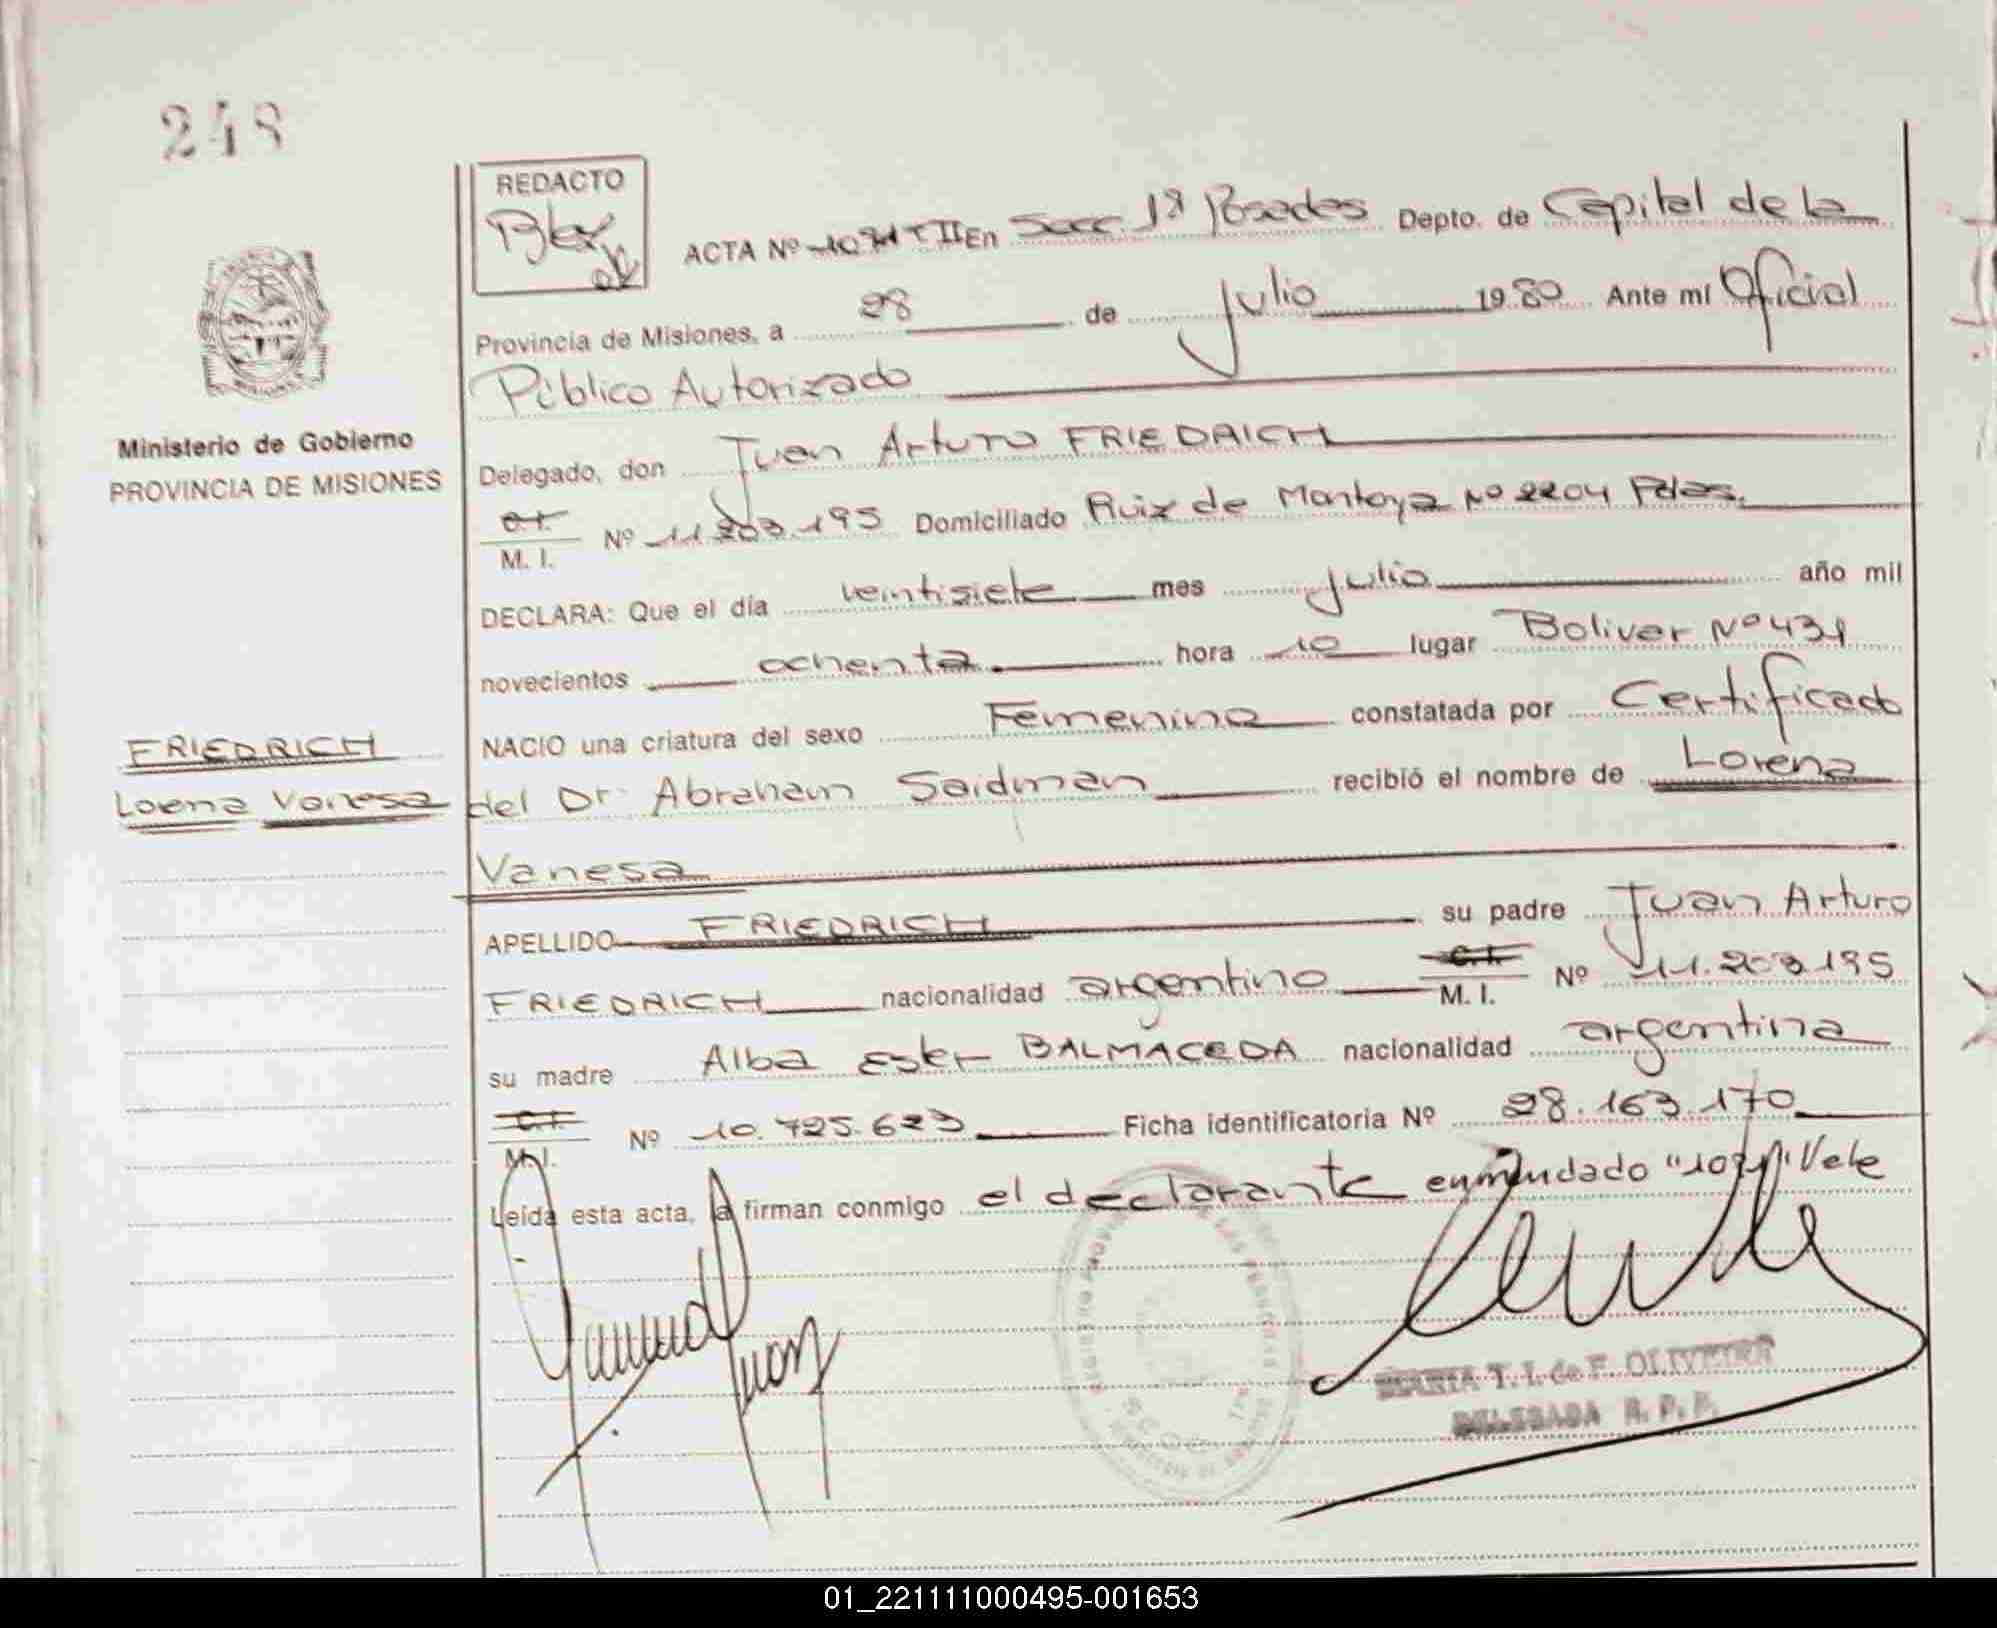 248
REDACTO
ACTA Nº 1071 T II En Secc. 1ª Posadas Depto. de Capital de la
Provincia de Misiones, a 28 de Julio 1980 Ante mí Oficial
Público Autorizado
Ministerio de Gobierno
PROVINCIA DE MISIONES
Delegado, don Juan Arturo FRIEDRICH
C.I.
M. I. Nº 11.203.195 Domiciliado Ruiz de Montoya Nº 2204 Pdas.
DECLARA: Que el día veintisiete mes julio año mil
novecientos ochenta hora 10 lugar Bolivar Nº 431
NACIO una criatura del sexo Femenino constatada por Certificado
FRIEDRICH
Loena Vanesa
del Dr. Abraham Saidman recibió el nombre de Lorena
Vanesa
APELLIDO FRIEDRICH su padre Juan Arturo
FRIEDRICH nacionalidad argentino C.I. M. I. Nº 11.203.195
su madre Alba Ester BALMACEDA nacionalidad argentina
C.I.
M. I. Nº 10.725.623 Ficha identificatoria Nº 28.163.170
Leída esta acta, la firman conmigo el declarante enmendado "1071" Vale
MARIA T. I. de F. OLIVEIRA
DELEGADA R. P. P.
01_221111000495-001653